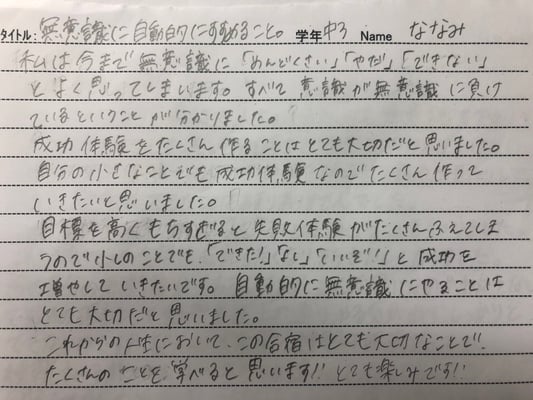 タイトル: 無意識に自動的にすすめること。 学年 中3 Name ななみ
私は今まで無意識に「めんどくさい」「やだ」「できない」
とよく思ってしまいます。すべて意識が無意識に負け
ているということが分かりました。
成功体験をたくさん作ることはとても大切だと思いました。
自分の小さなことでも成功体験なのでたくさん作って
いきたいと思いました。
目標を高くもちすぎると失敗体験がたくさんふえてしま
うので小しのことでも、「できた!」「なし」「いいぞ!」と成功を
増やしていきたいです。自動的に無意識にやることは
とても大切だと思いました。
これからの人生において、この合宿はとても大切なことで、
たくさんのことを学べると思います!! とても楽しみです!!